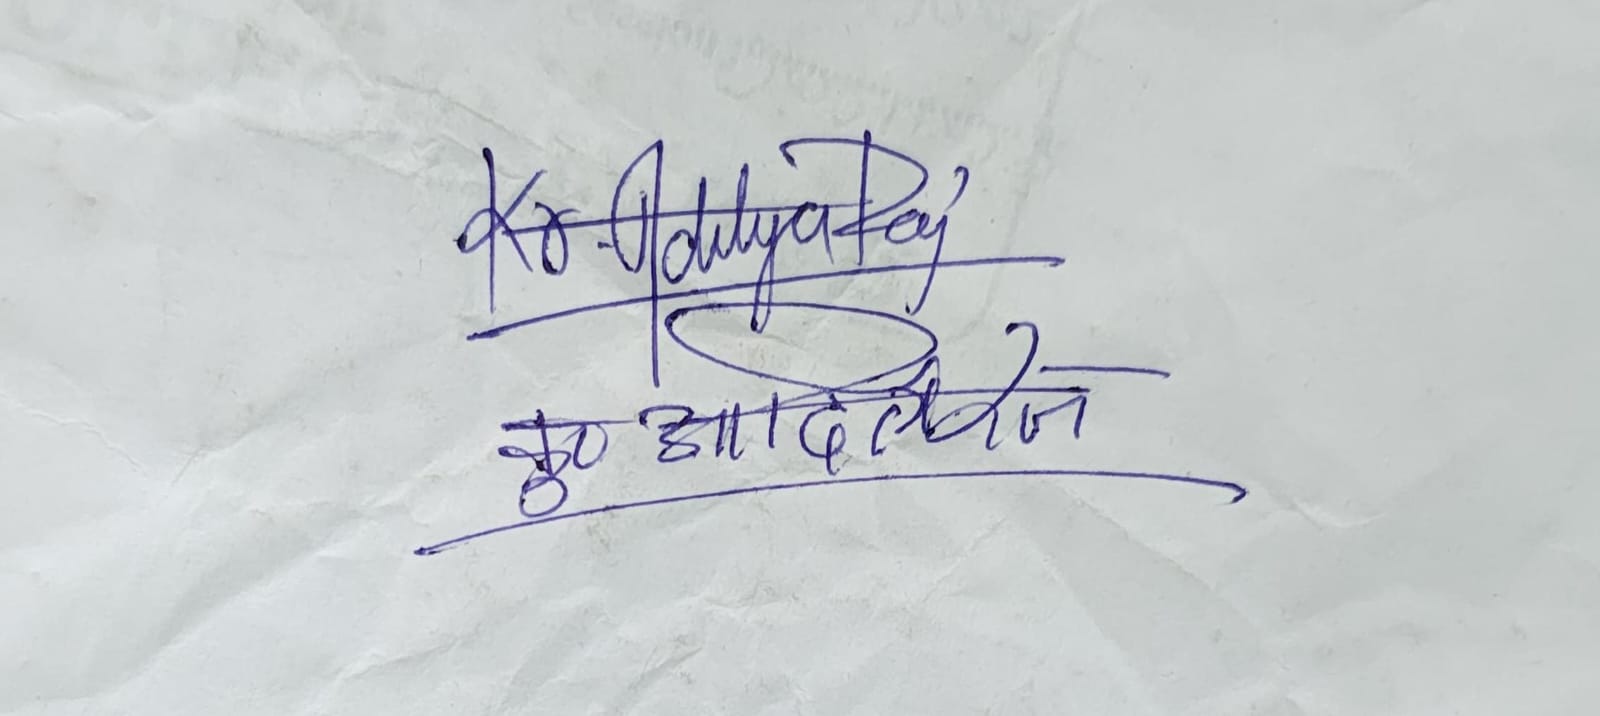 Kr. Aditya Raj
कु० आदित्य राज